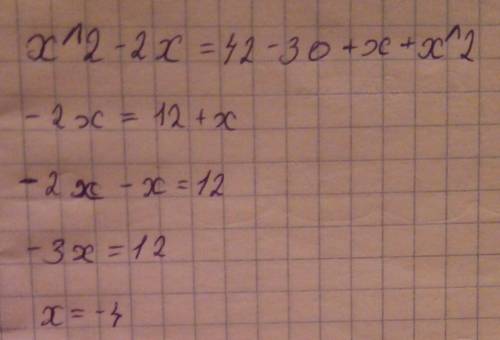 x^2 - 2x = 42 - 30 + x + x^2
- 2x = 12 + x
- 2x - x = 12
- 3x = 12
x = -4